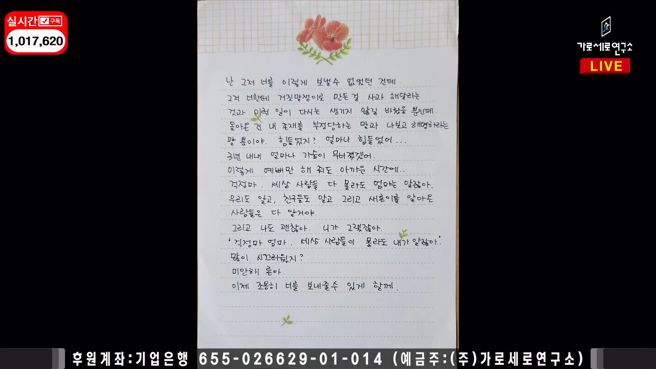 실시간 구독
1,017,620
가로세로연구소
LIVE
난 그저 너를 이렇게 보낼수 없었던 건데
그저 너한테 거짓말쟁이로 만든걸 사과 해달라는
것과 이런 일이 다시는 생기지 않길 바랬을 뿐인데
돌아온 건 내 존재를 부정당하는 말과 나보고 해명하라는
말 뿐이야. 힘들었지? 얼마나 힘들었어...
3년 내내 얼마나 가슴이 무너졌겠어.
이렇게 예뻐만 해 줘도 아까운 시간에..
걱정마. 세상 사람들 다 몰라도 엄마는 알잖아.
우리도 알고, 친구들도 알고 그리고 새론이를 알아온
사람들은 다 알거야
그리고 나도 괜찮아. 니가 그랬잖아.
'걱정마 엄마. 세상 사람들이 몰라도 내가 알잖아.'
많이 시끄러웠지?
미안해 론아
이제 조용히 너를 보내줄수 있게 할께.
후원계좌:기업은행 655-026629-01-014 (예금주:(주)가로세로연구소)